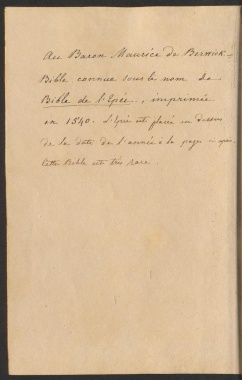 Au Baron Maurice de Berwick –
Bible connue sous le nom de
Bible de l'Épée, imprimée
en 1540. L'épée est placée au dessus
de la date de l'année à la page
Cette Bible est très rare.